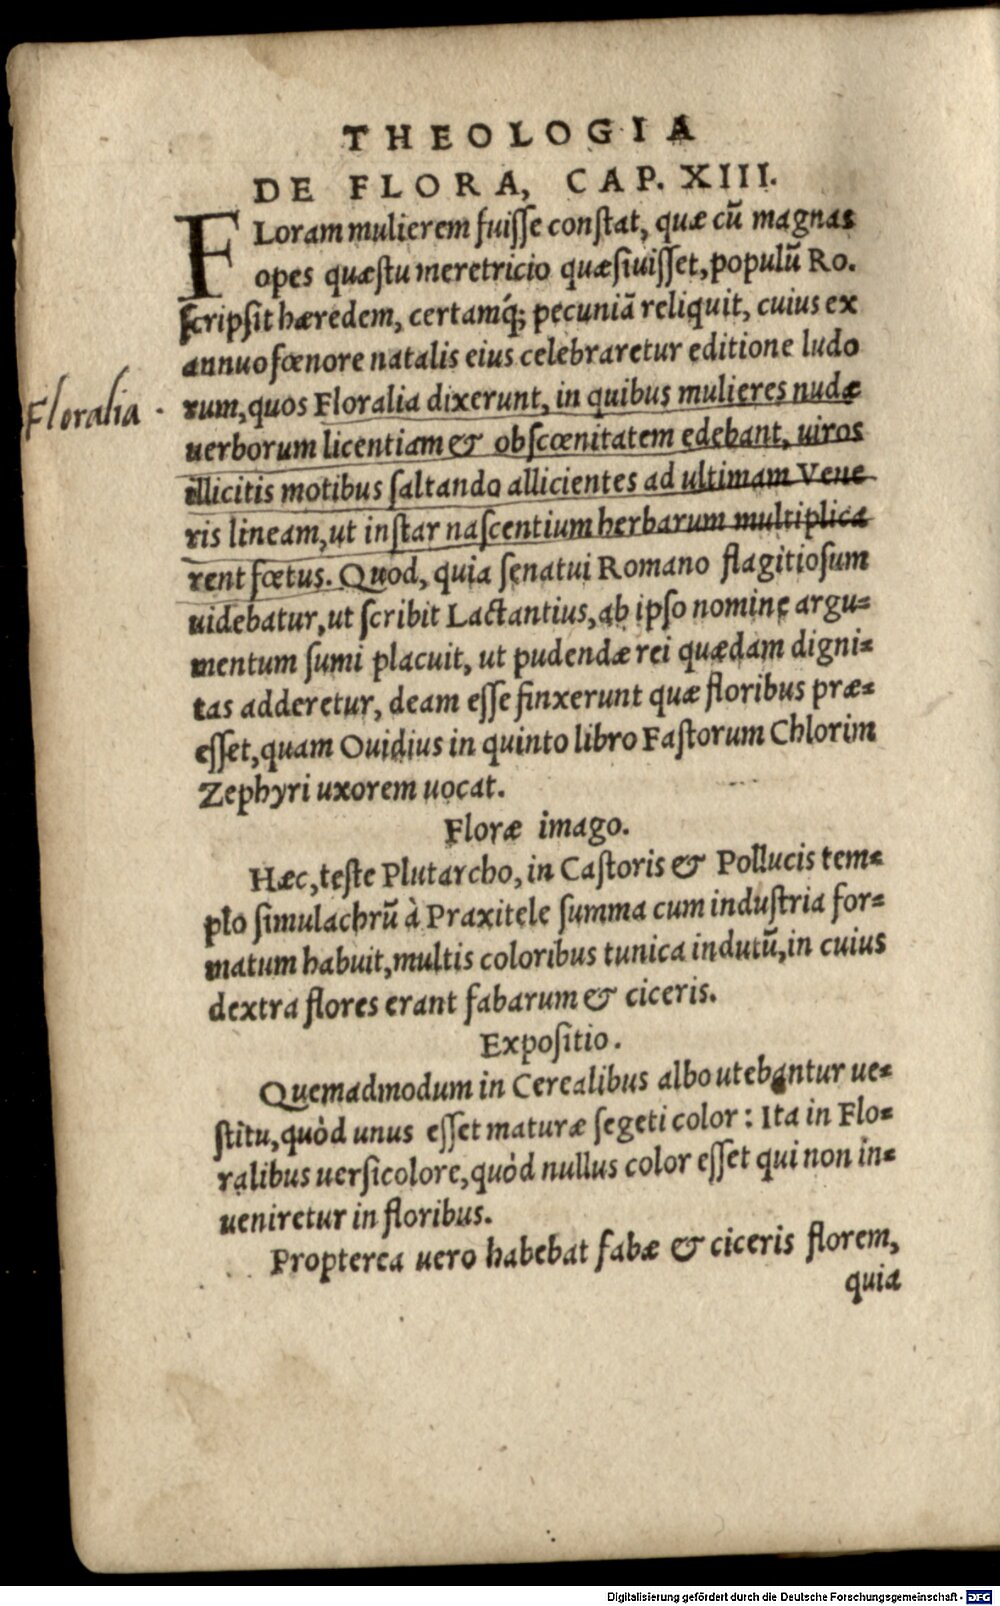 THEOLOGIA
DE FLORA, CAP. XIII.
FLoram mulierem fuiſſe conſtat, quæ cū magnas
opes quæſtu meretricio quæſiuiſſet, populū Ro.
ſcripſit hæredem, certamq́; pecuniā reliquit, cuius ex
annuo fœnore natalis eius celebraretur editione ludo
Floralia
rum, quos Floralia dixerunt, in quibus mulieres nudæ
uerborum licentiam & obſcœnitatem edebant, uiros
illicitis motibus ſaltando allicientes ad ultimam Vene
ris lineam, ut inſtar naſcentium herbarum multiplica
rent fœtus. Quod, quia ſenatui Romano flagitioſum
uidebatur, ut ſcribit Lactantius, ab ipſo nomine argu=
mentum ſumi placuit, ut pudendæ rei quædam digni=
tas adderetur, deam eſſe finxerunt quæ floribus præ=
eſſet, quam Ouidius in quinto libro Faſtorum Chlorim
Zephyri uxorem uocat.
Floræ imago.
Hæc, teſte Plutarcho, in Caſtoris & Pollucis tem=
plo ſimulachrū à Praxitele ſumma cum induſtria for=
matum habuit, multis coloribus tunica indutū, in cuius
dextra flores erant fabarum & ciceris.
Expoſitio.
Quemadmodum in Cerealibus albo utebantur ue=
ſtitu, quòd unus eſſet maturæ ſegeti color: Ita in Flo=
ralibus uerſicolore, quòd nullus color eſſet qui non in=
ueniretur in floribus.
Propterea uero habebat fabæ & ciceris florem,
quia
Digitalisierung gefördert durch die Deutsche Forschungsgemeinschaft - DFG